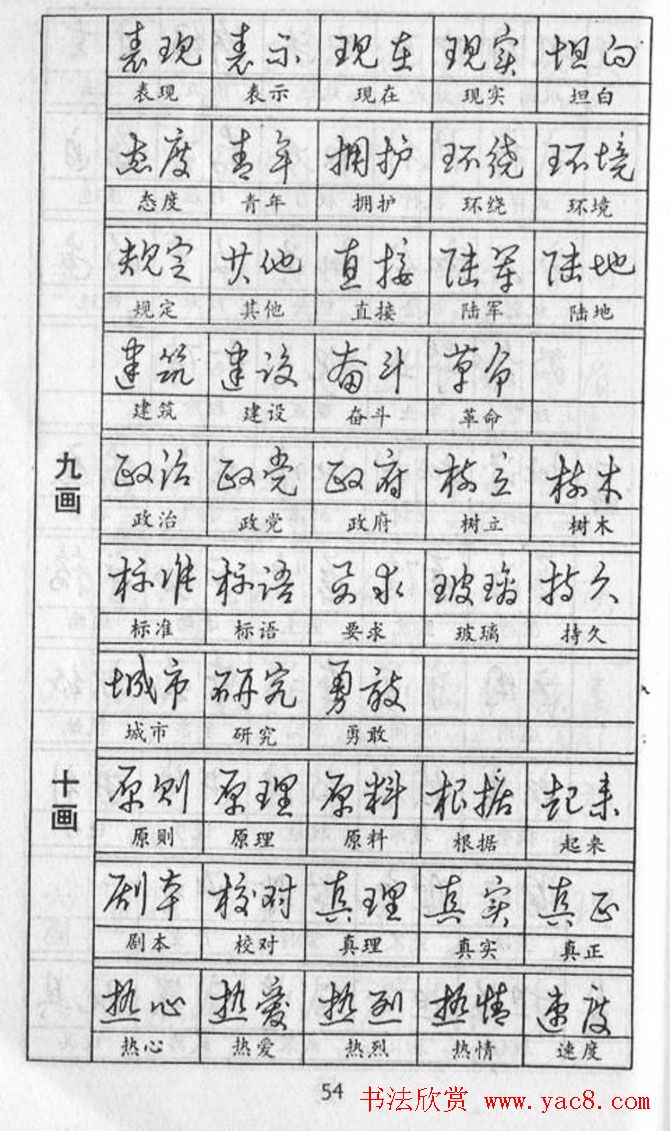 表现 表示 现在 现实 坦白
表现 表示 现在 现实 坦白
态度 青年 拥护 环绕 环境
态度 青年 拥护 环绕 环境
规定 其他 直接 陆军 陆地
规定 其他 直接 陆军 陆地
建筑 建设 奋斗 革命
建筑 建设 奋斗 革命
九画
政治 政党 政府 树立 树木
政治 政党 政府 树立 树木
标准 标语 要求 玻璃 持久
标准 标语 要求 玻璃 持久
城市 研究 勇敢
城市 研究 勇敢
十画
原则 原理 原料 根据 起来
原则 原理 原料 根据 起来
剧本 校对 真理 真实 真正
剧本 校对 真理 真实 真正
热心 热爱 热烈 热情 速度
热心 热爱 热烈 热情 速度
54
书法欣赏 www.yac8.com